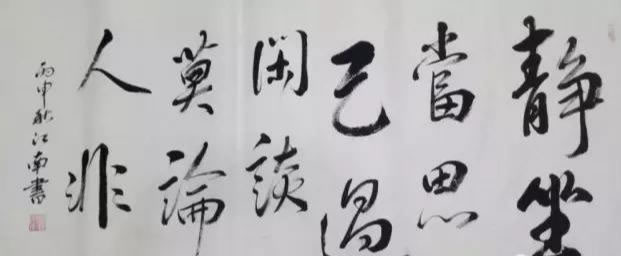 靜坐
當思
己過
閑談
莫論
人非
丙申秋江南書